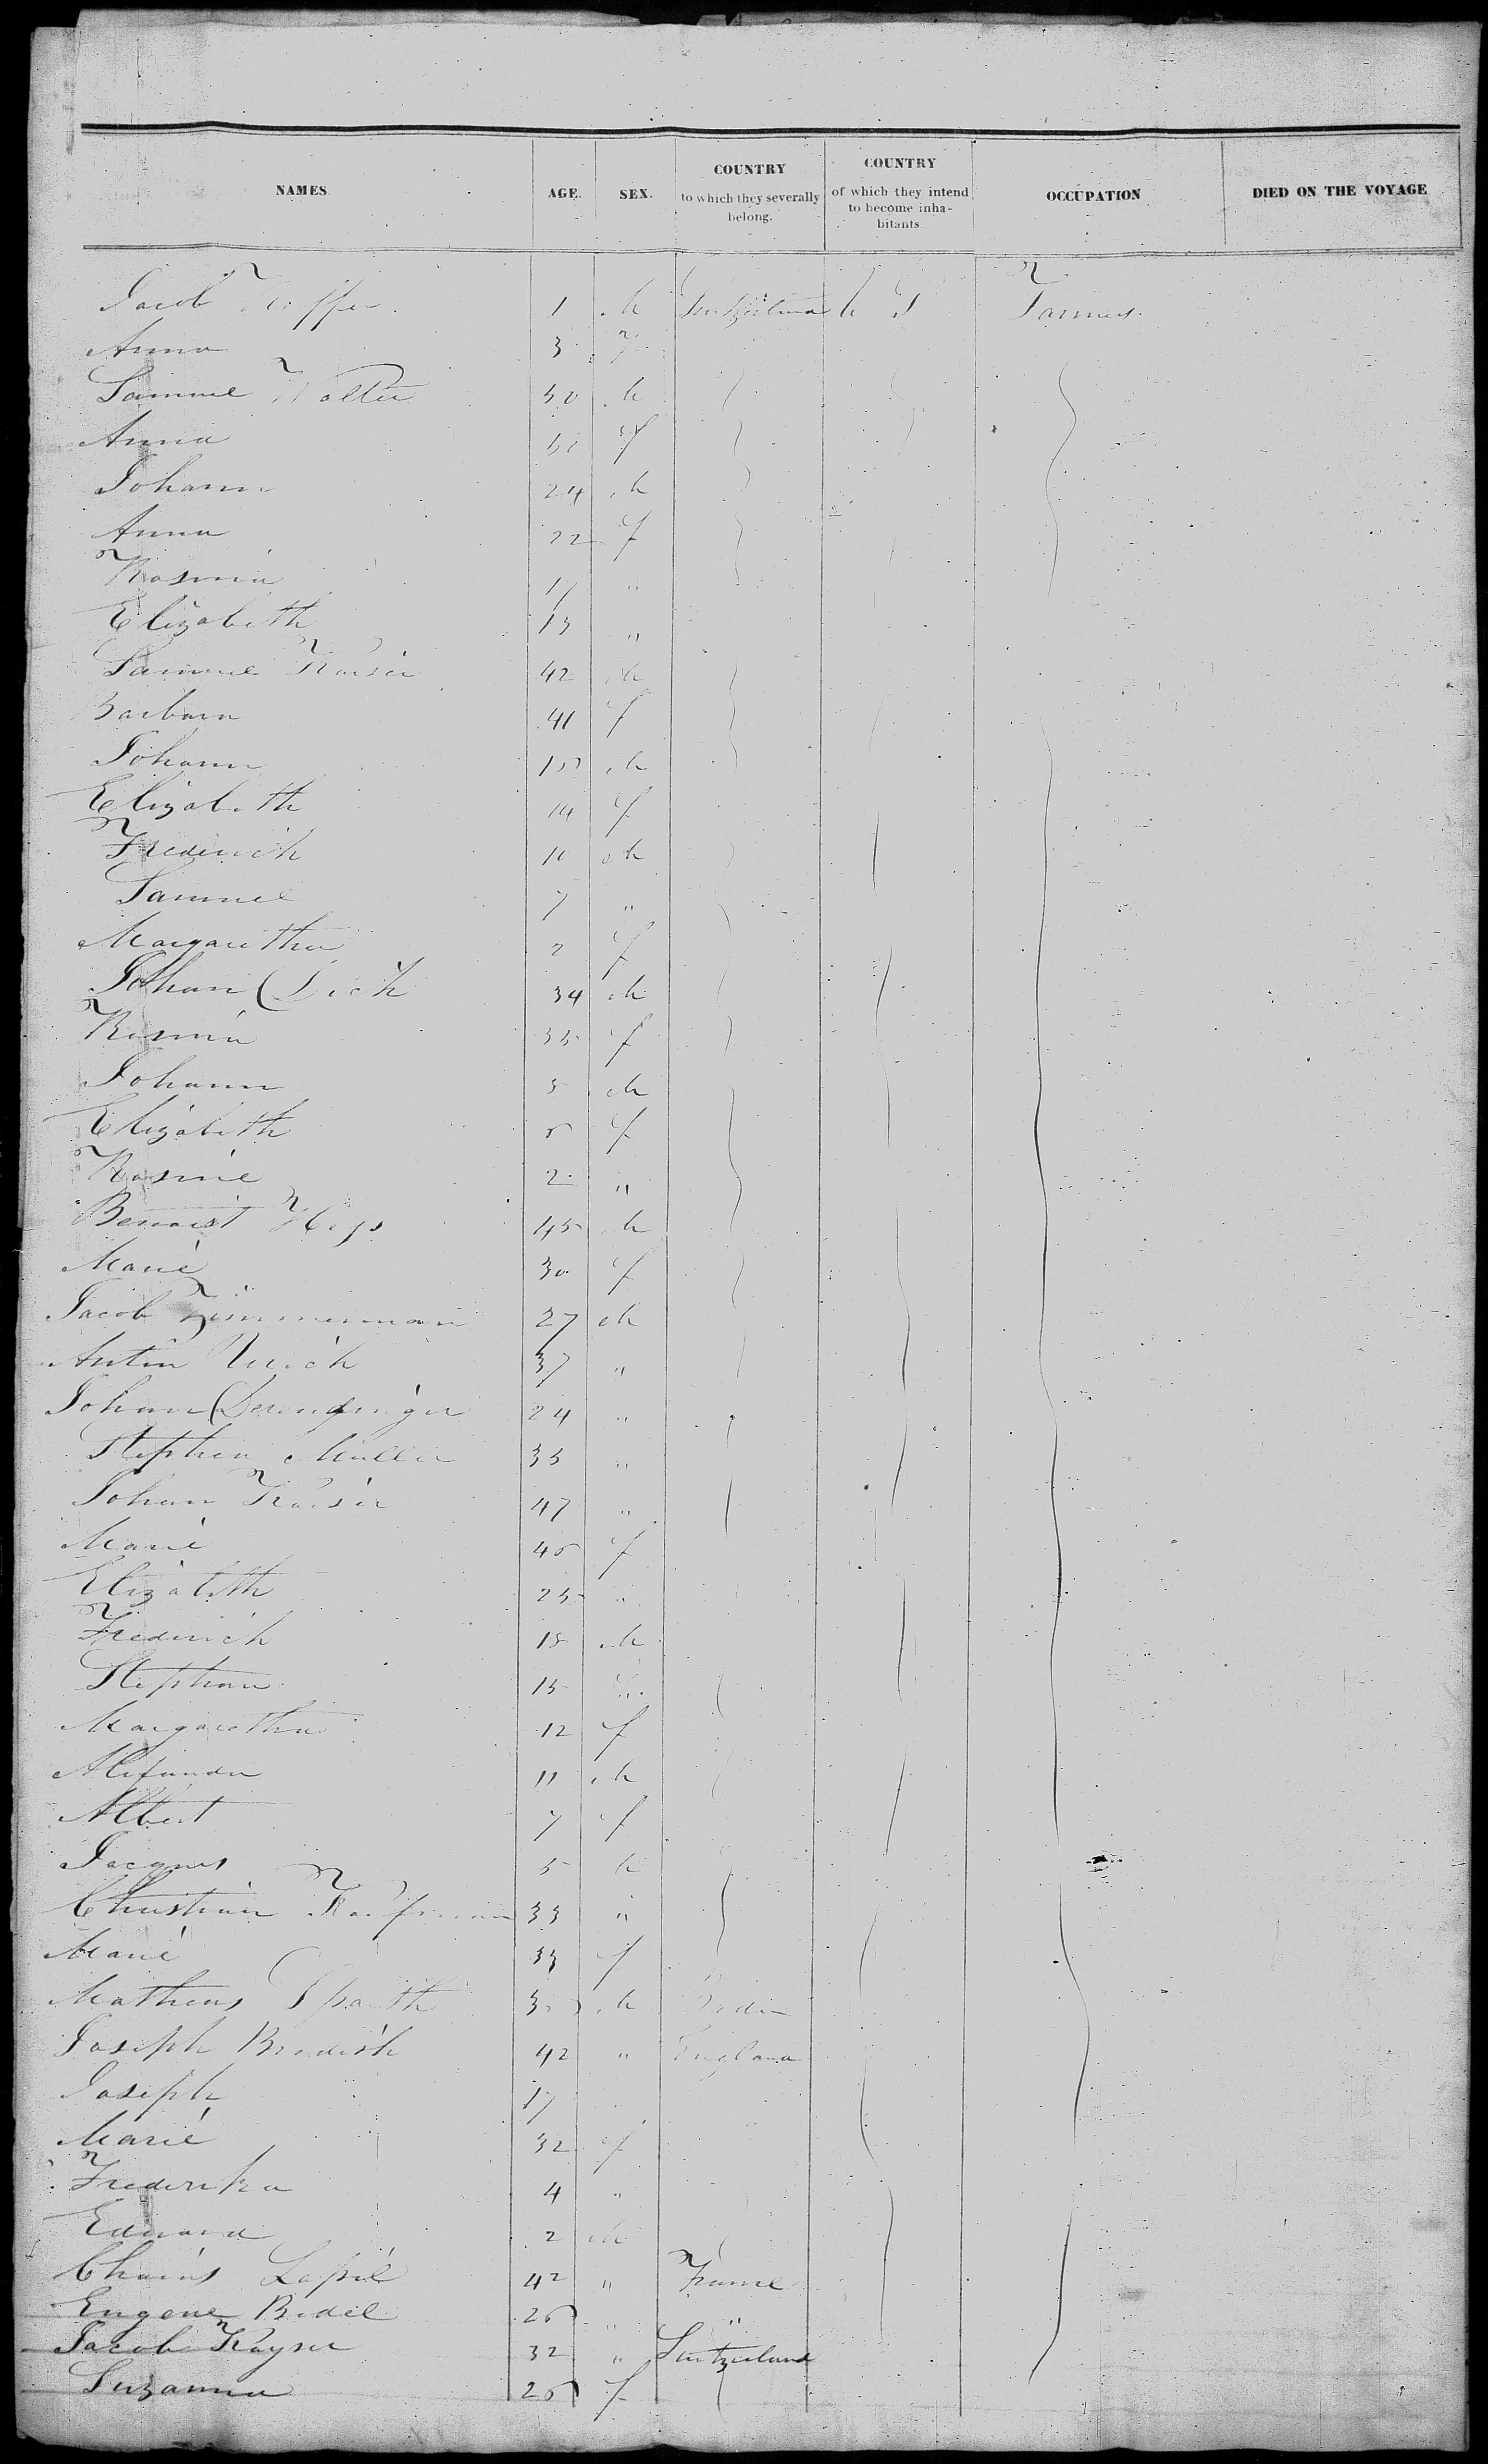 NAMES. AGE. SEX. COUNTRY to which they severally belong. COUNTRY of which they intend to become inhabitants. OCCUPATION DIED ON THE VOYAGE
Jacob 1 M Switzerland U S Farmers
Anna 3 f
Samuel Walter 50 M
Anna f
Johann 24 M
Anna 22 f
Rosina 17 "
Elizabeth 13 "
Samuel Kaiser 42 M
Barbara 41 f
Johann M
Elizabeth 14 f
Frederich M
Samuel 7 "
Margaretha 2 f
Johan Dick 34 M
Rosina 35 f
Johann 5 M
Elizabeth f
Rosine 2 "
Benoist 45 M
Marie 30 f
Jacob Zimmerman 27 M
Anton 37 "
Johann Derendinger 24 "
Stephen Muller 33 "
Johan Kaiser 47 "
Marie 45 f
Elizabeth 25 "
Frederich 18 M
Stephan 15 "
Margaretha 12 f
Alexander 11 M
Albert 7 f
Jacques 5 M
Christian Kaufman 33 "
Marie 33 f
Matheus Spaeth M Baden
Joseph 42 " England
Joseph 17 "
Marie 32 f
Frederika 4 "
Edward 2 M
42 " France
Eugene Bidel 26 " "
Jacob Kayser 32 " Switzerland
Suzanna 26 f